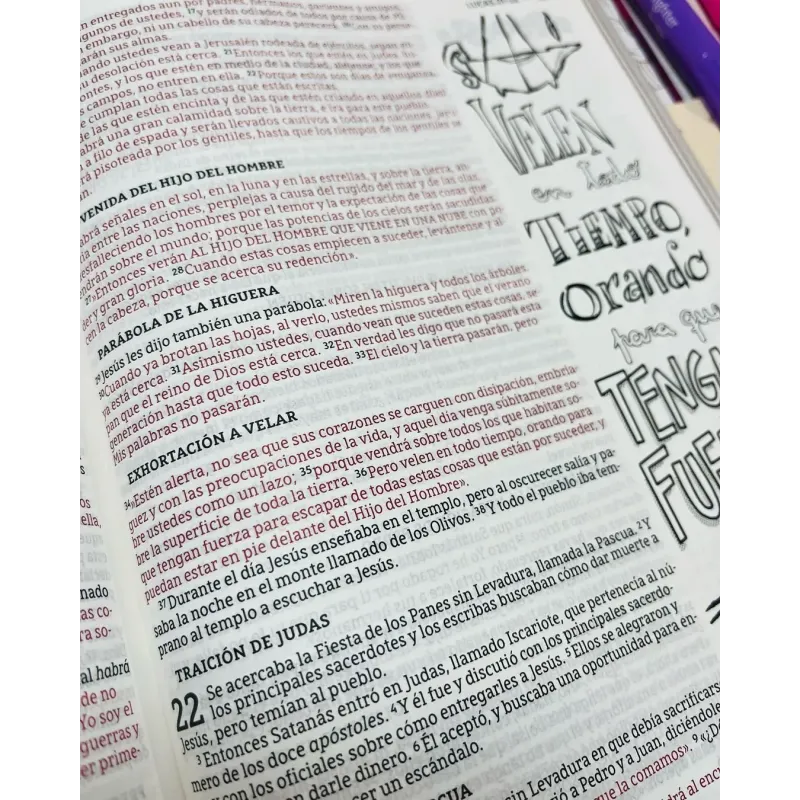 entregados aun por padres, hermanos, parientes y amigos,
lgunos de ustedes, 17y serán odiados de todos por causa de Mi
embargo, ni un cabello de su cabeza perecerá.
arán sus almas.
ando ustedes vean a Jerusalén rodeada de ejércitos, sepan en-
su desolación está cerca. 21Entonces los que estén en Judea,
ontes, y los que estén en medio de la ciudad, aléjense, y los que
s campos, no entren en ella. 22Porque estos son días de venganza,
e cumplan todas las cosas que están escritas.
de las que estén encinta y de las que estén criando en aquellos días!
abrá una gran calamidad sobre la tierra, e ira para este pueblo.
n a filo de espada y serán llevados cautivos a todas las naciones, Jeru
rá pisoteada por los gentiles, hasta que los tiempos de los gentiles se
n.
VENIDA DEL HIJO DEL HOMBRE
abrá señales en el sol, en la luna y en las estrellas, y sobre la tierra, an-
ia entre las naciones, perplejas a causa del rugido del mar y de las olas,
esfalleciendo los hombres por el temor y la expectación de las cosas que
ndrán sobre el mundo; porque las potencias de los cielos serán sacudidas.
27»Entonces verán AL HIJO DEL HOMBRE QUE VIENE EN UNA NUBE con po-
der y gran gloria. 28Cuando estas cosas empiecen a suceder, levántense y al-
cen la cabeza, porque se acerca su redención».
PARÁBOLA DE LA HIGUERA
29Jesús les dijo también una parábola: «Miren la higuera y todos los árboles.
30Cuando ya brotan las hojas, al verlo, ustedes mismos saben que el verano
ya está cerca. 31Asimismo ustedes, cuando vean que suceden estas cosas, se-
pan que el reino de Dios está cerca. 32En verdad les digo que no pasará esta
generación hasta que todo esto suceda. 33El cielo y la tierra pasarán, pero
Mis palabras no pasarán.
EXHORTACIÓN A VELAR
34»Estén alerta, no sea que sus corazones se carguen con disipación, embria-
guez y con las preocupaciones de la vida, y aquel día venga súbitamente so-
bre ustedes como un lazo; 35porque vendrá sobre todos los que habitan so-
bre la superficie de toda la tierra. 36Pero velen en todo tiempo, orando para
que tengan fuerza para escapar de todas estas cosas que están por suceder, y
puedan estar en pie delante del Hijo del Hombre».
37Durante el día Jesús enseñaba en el templo, pero al oscurecer salía y pa-
saba la noche en el monte llamado de los Olivos. 38Y todo el pueblo iba tem-
prano al templo a escuchar a Jesús.
TRAICIÓN DE JUDAS
22 Se acercaba la Fiesta de los Panes sin Levadura, llamada la Pascua. 2Y
los principales sacerdotes y los escribas buscaban cómo dar muerte a
Jesús, pero temían al pueblo.
3Entonces Satanás entró en Judas, llamado Iscariote, que pertenecía al nú-
mero de los doce apóstoles. 4Y él fue y discutió con los principales sacerdo-
y con los oficiales sobre cómo entregarles a Jesús. 5Ellos se alegraron y
on darle dinero. 6Él aceptó, y buscaba una oportunidad para en-
cer un escándalo.
CUA
sin Levadura en que debía sacrificarse
ió a Pedro y a Juan, diciéndole
que la comamos». 9«¿Dó
drá al encu
VELEN
en todo
TIEMPO,
orando
para que
TENGA
FUE
ella,
nado
as co-
ra so-
al habrá
de no
Yo soy el
guerras y
er prime-